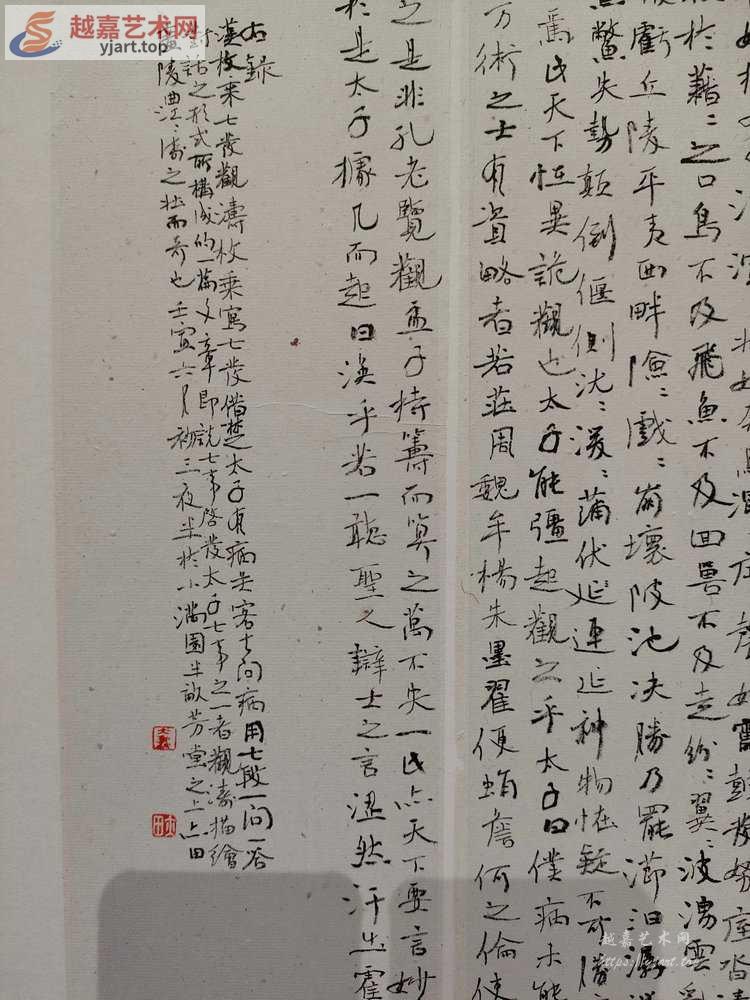 越嘉艺术网
yjart.top
狀如奔馬混
聲如雷鼓發怒庢沓清
於藉〻之口鳥不及飛魚不及回獸不及走紛〻翼〻波湧雲亂
虧丘陵平夷西畔險〻戲〻崩壞陂池決勝乃罷㴉汩潺
鱉失勢顛倒偃側沈〻湲〻蒲伏延連延神物恠疑不可勝
焉此天下恠異詭觀也太子能彊起觀之乎太子曰僕病未能
方術之士有資略者若莊周魏牟楊朱墨翟便蜎詹何之倫使
之是非孔老覽觀孟子持籌而算之萬不失一此亦天下要言妙
於是太子據几而起曰渙乎若一聽聖人辯士之言涊然汗出霍
右錄
漢枚乘七發觀濤枚乘寫七發借楚太子有病吳客去問病用七段一問一答
對話之形式所構成的一篇文章即說七事啓發太子七事之一者觀濤描繪
廣陵曲江〻濤之壯而奇也壬寅六月初三夜半於小滿園半畝芳堂之上亦田
越嘉艺术网
https://yjart.top